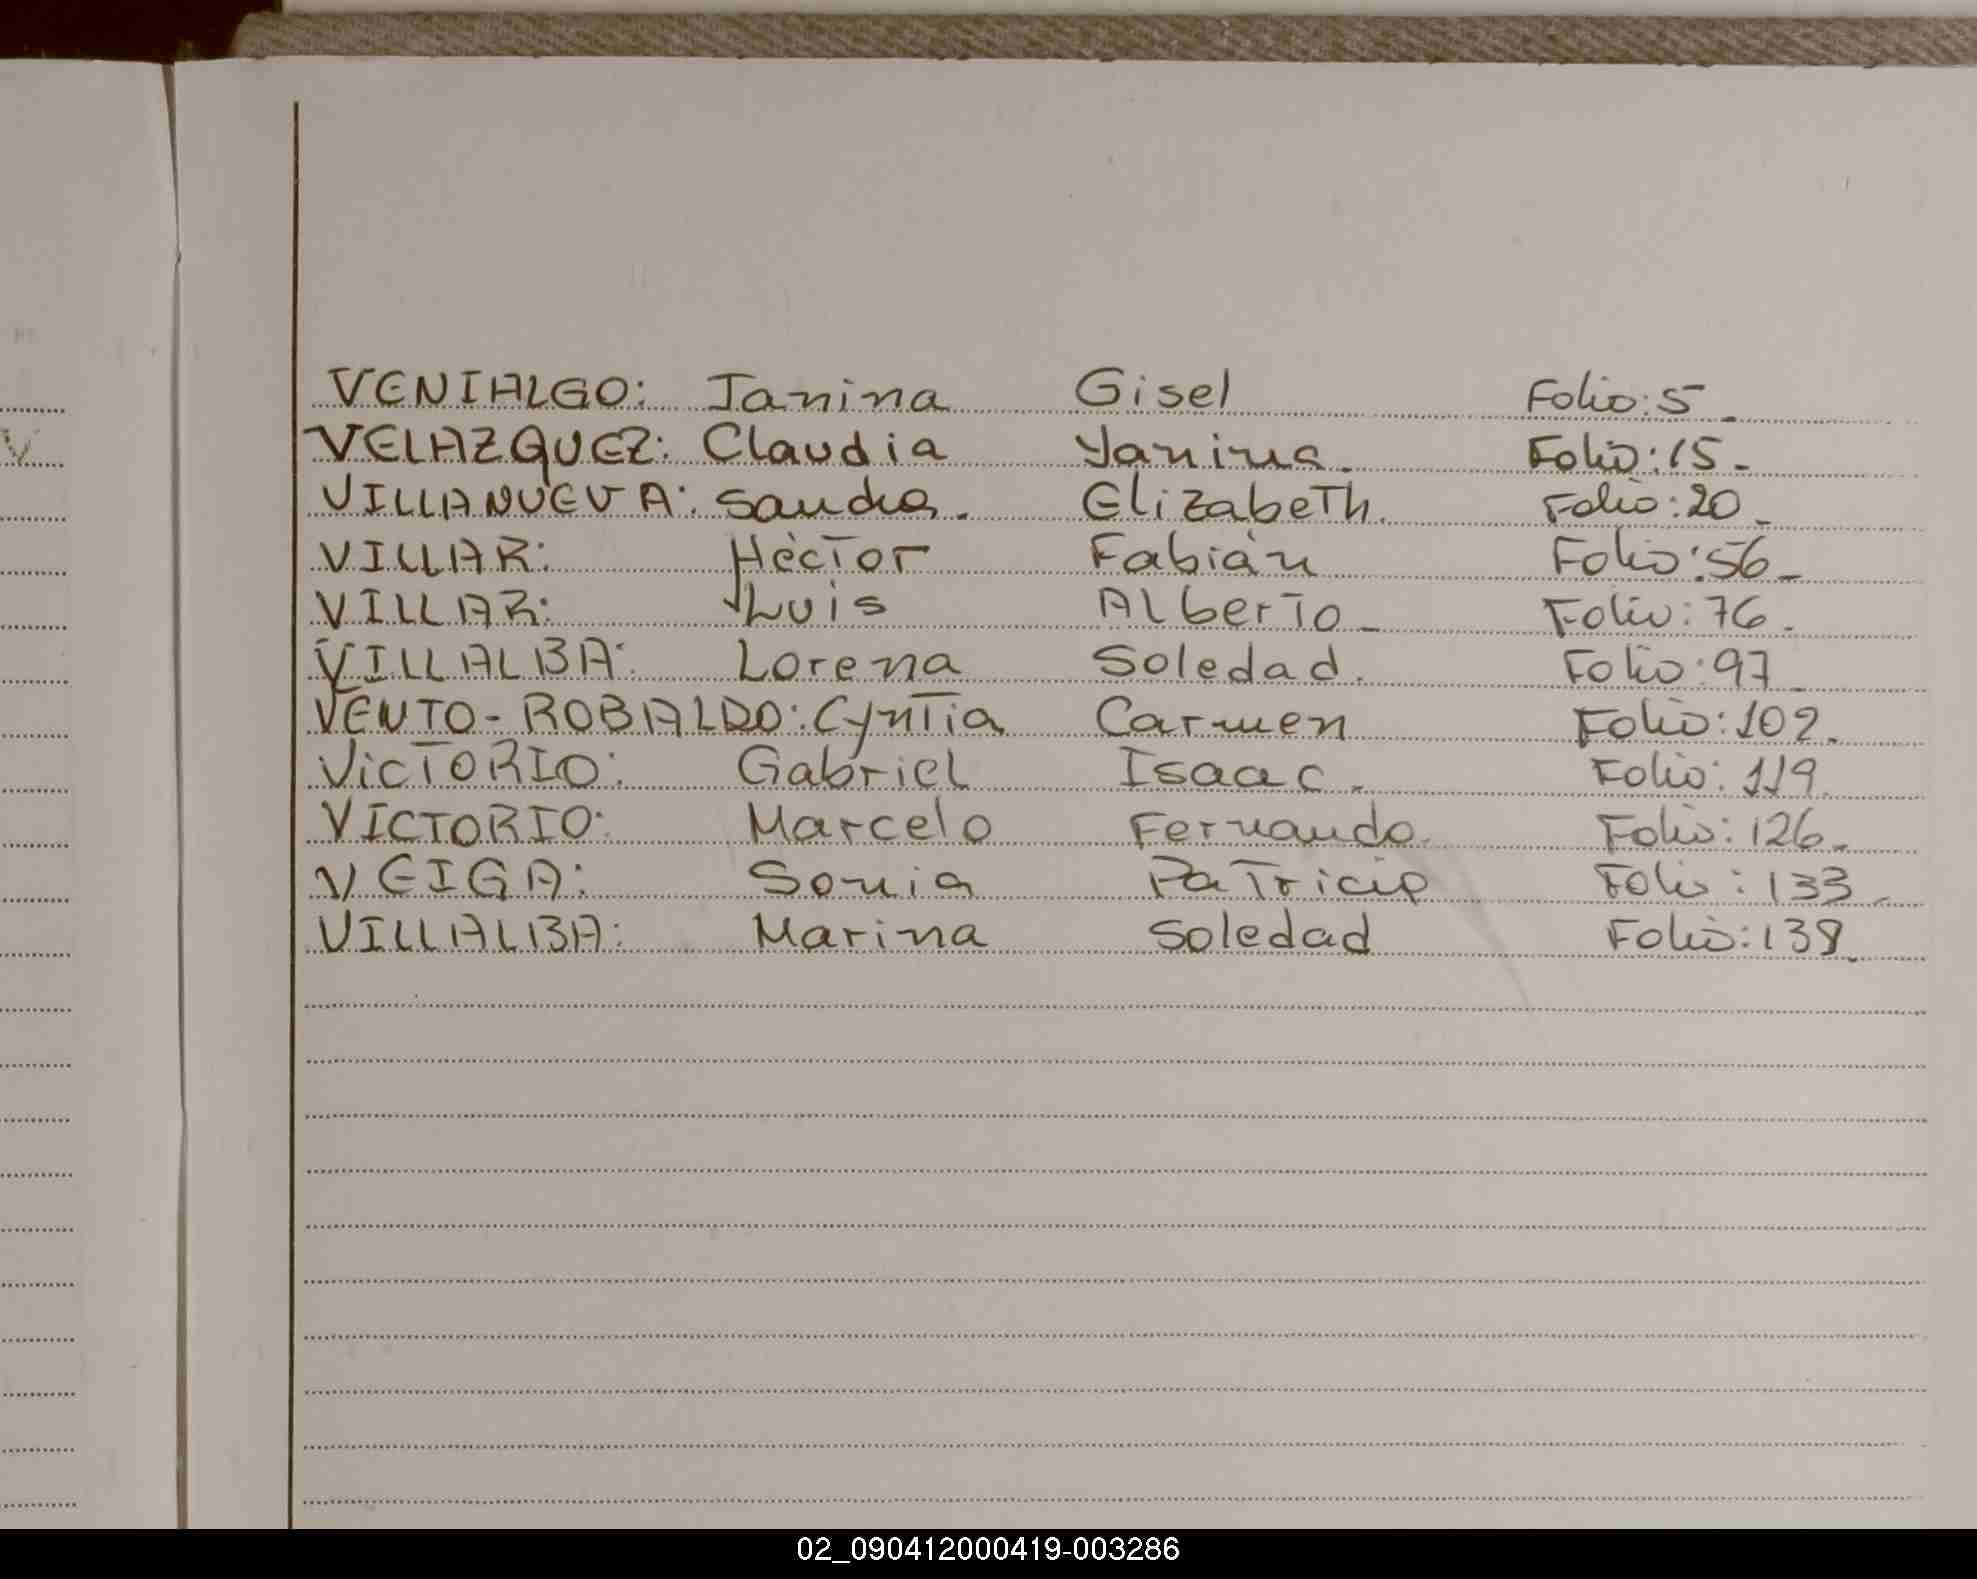 VENIALGO: Janina Gisel Folio: 5.
VELAZQUEZ: Claudia Yanina. Folio: 15.
VILLANUEVA: Sandra. Elizabeth. Folio: 20.
VILLAR: Héctor Fabián Folio: 56.
VILLAR: Luis Alberto. Folio: 76.
VILLALBA: Lorena Soledad. Folio: 97.
VENTO-ROBALDO: Cyntia Carmen Folio: 102.
VICTORIO: Gabriel Isaac. Folio: 119.
VICTORIO: Marcelo Fernando. Folio: 126.
VEIGA: Sonia Patricia Folio: 133.
VILLALBA: Marina Soledad Folio: 138.
02_090412000419-003286